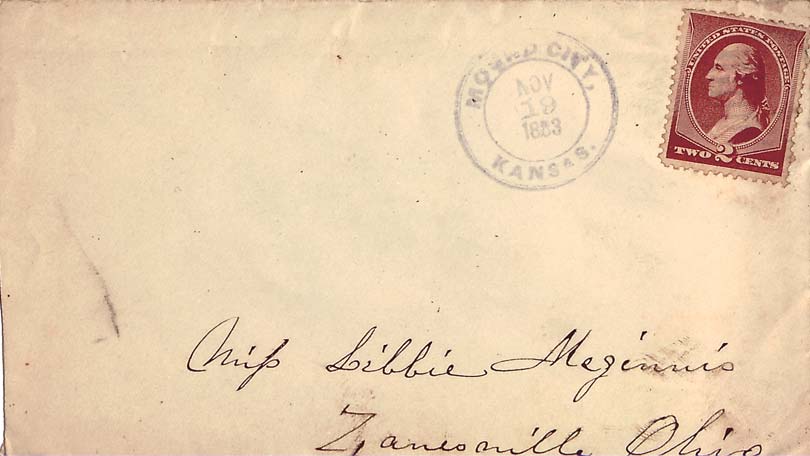 MOUND CITY,
NOV
19
1883
KANSAS.
UNITED STATES POSTAGE
TWO 2 CENTS
Miss Libbie Maginnis
Zanesville Ohio